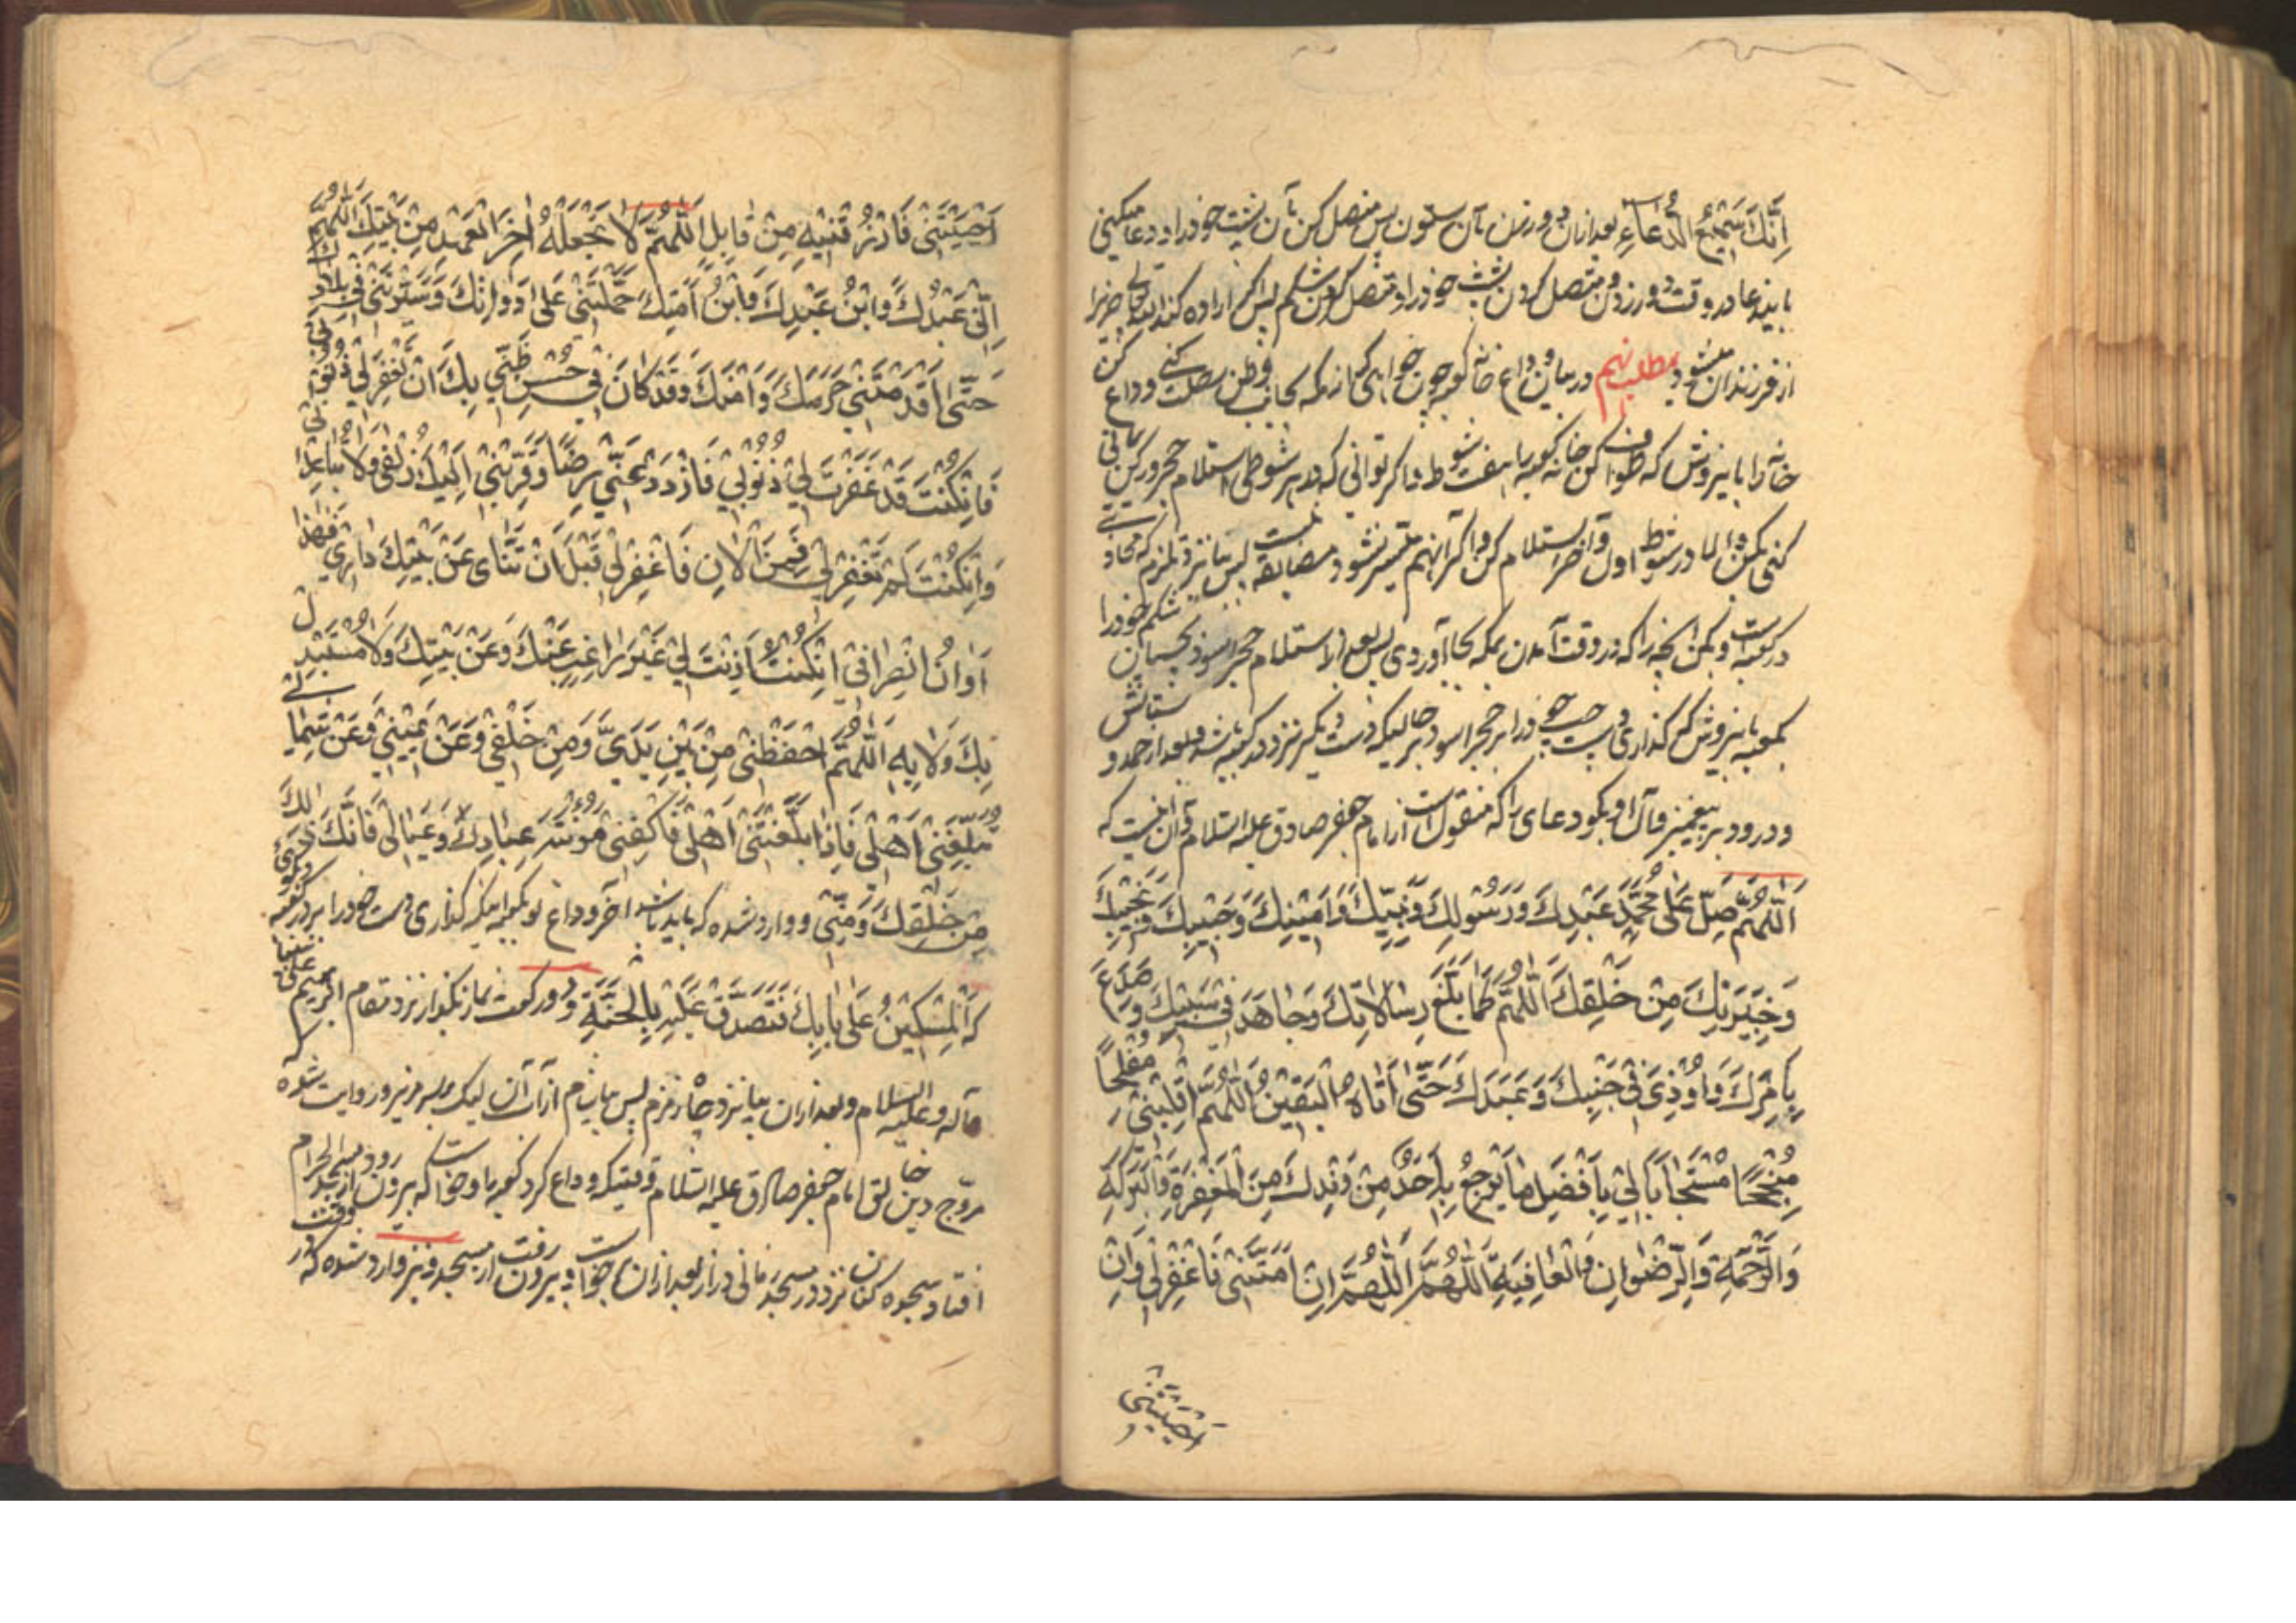 اِنَّكَ سَمِيعُ الدُّعَاءِ بعد ازان دور زن بآن ستون پس متصل كن بآن پشت خود را و دعا ميكنى
بايندعا در وقت دور زدن و متصل كردن پشت خود را و متصل كردن شكم پس اگر اراده كند الله تعالى چيزيرا
از فرزندان ميشود مطلب نهم در بيان وداع خانه كعبه چون خواهى كه از مكه بجانب وطن رحلت كنى وداع كن
خانه را باينروش كه طواف كن خانه كعبه را هفت شوط و اگر توانى كه در هر شوطى استلام حجر و ركن يمانى
كنى بكن والا در شوط اول و آخر استلام كن و اگر آنهم ميسر نشود مضايقه نيست پس بيا نزد ملتزم كه محاذى
در كعبه است و بكن آنچه را كه در وقت آمدن بمكه بجا آوردى پس بعد از استلام حجر اسود بچسبان شكم خود را
بكعبه باينروش كه گذارى دست چپ خود را بر حجر اسود بر حاليكه دست ديگر نزد در كعبه باشد و بعد از حمد و ستايش
و درود بر پيغمبر و آل او بگو دعاى را كه منقول است از امام جعفر صادق عليه السلام و آن اينست كه
اَللّٰهُمَّ صَلِّ عَلٰى مُحَمَّدٍ عَبْدِكَ وَرَسُولِكَ وَنَبِيِّكَ وَاَمِينِكَ وَحَبِيبِكَ وَنَجِيبِكَ
وَخِيَرَتِكَ مِنْ خَلْقِكَ اَللّٰهُمَّ كَمَا بَلَّغَ رِسَالَاتِكَ وَجَاهَدَ فِي سَبِيلِكَ وَصَدَعَ
بِاَمْرِكَ وَاُوذِيَ فِي جَنْبِكَ وَعَبَدَكَ حَتّٰى اَتَاهُ الْيَقِينُ اَللّٰهُمَّ اقْلِبْنِي مُفْلِحًا
مُنْجِحًا مُسْتَجَابًا لِي بِاَفْضَلِ مَا يَرْجِعُ بِهِ اَحَدٌ مِنْ وَفْدِكَ مِنَ الْمَغْفِرَةِ وَالْبَرَكَةِ
وَالرَّحْمَةِ وَالرِّضْوَانِ وَالْعَافِيَةِ اَللّٰهُمَّ اَللّٰهُمَّ اِنْ اَمَتَّنِي فَاغْفِرْ لِي وَاِنْ
اَحْيَيْتَنِي
اَحْيَيْتَنِي فَارْزُقْنِيهِ مِنْ قَابِلٍ اَللّٰهُمَّ لَا تَجْعَلْهُ اٰخِرَ الْعَهْدِ مِنْ بَيْتِكَ اَللّٰهُمَّ
اِنِّي عَبْدُكَ وَابْنُ عَبْدِكَ وَابْنُ اَمَتِكَ حَمَلْتَنِي عَلٰى دَوَابِّكَ وَسَيَّرْتَنِي فِي بِلَادِكَ
حَتّٰى اَقْدَمْتَنِي حَرَمَكَ وَاَمْنَكَ وَقَدْ كَانَ فِي حُسْنِ ظَنِّي بِكَ اَنْ تَغْفِرَ لِي ذُنُوبِي
فَاِنْ كُنْتَ قَدْ غَفَرْتَ لِي ذُنُوبِي فَازْدَدْ عَنِّي رِضًا وَقَرِّبْنِي اِلَيْكَ زُلْفٰى وَلَا تُبَاعِدْنِي
وَاِنْ كُنْتَ لَمْ تَغْفِرْ لِي فَمِنَ الْاٰنِ فَاغْفِرْ لِي قَبْلَ اَنْ تَنْاٰى عَنْ بَيْتِكَ دَارِي فَهٰذَا
اَوَانُ انْصِرَافِي اِنْ كُنْتَ اَذِنْتَ لِي غَيْرَ رَاغِبٍ عَنْكَ وَعَنْ بَيْتِكَ وَلَا مُسْتَبْدِلٍ
بِكَ وَلَا بِهِ اَللّٰهُمَّ احْفَظْنِي مِنْ بَيْنِ يَدَيَّ وَمِنْ خَلْفِي وَعَنْ يَمِينِي وَعَنْ شِمَالِي
وَبَلِّغْنِي اَهْلِي فَاِذَا بَلَّغْتَنِي اَهْلِي فَاكْفِنِي مَؤُونَةَ عِبَادِكَ وَعِيَالِي فَاِنَّكَ وَلِيُّ ذٰلِكَ
مِنْ خَلْقِكَ وَمِنِّي و وارد شده كه بايد باشد آخر وداع تو بكعبه اينكه گذارى دست خود را بر در كعبه و بگوئى
كه اَلْمِسْكِينُ عَلٰى بَابِكَ فَتَصَدَّقْ عَلَيْهِ بِالْجَنَّةِ و دو ركعت نماز بگذار نزد مقام ابرهيم على نبينا
وآله و عليه السلام و بعد ازان بيا نزد چاه زمزم پس بياشام از آب آن ليك بر سر مريز و روايت شده
مروّج دين خالق امام جعفر صادق عليه السلام وقتيكه وداع كرد كعبه را و خواست كه بيرون رود از مسجد الحرام
افتاد بسجده كنان نزد در مسجد زمانى دراز بعد ازان برخواست و بيرون رفت از مسجد و نيز وارد شده كه در وقت